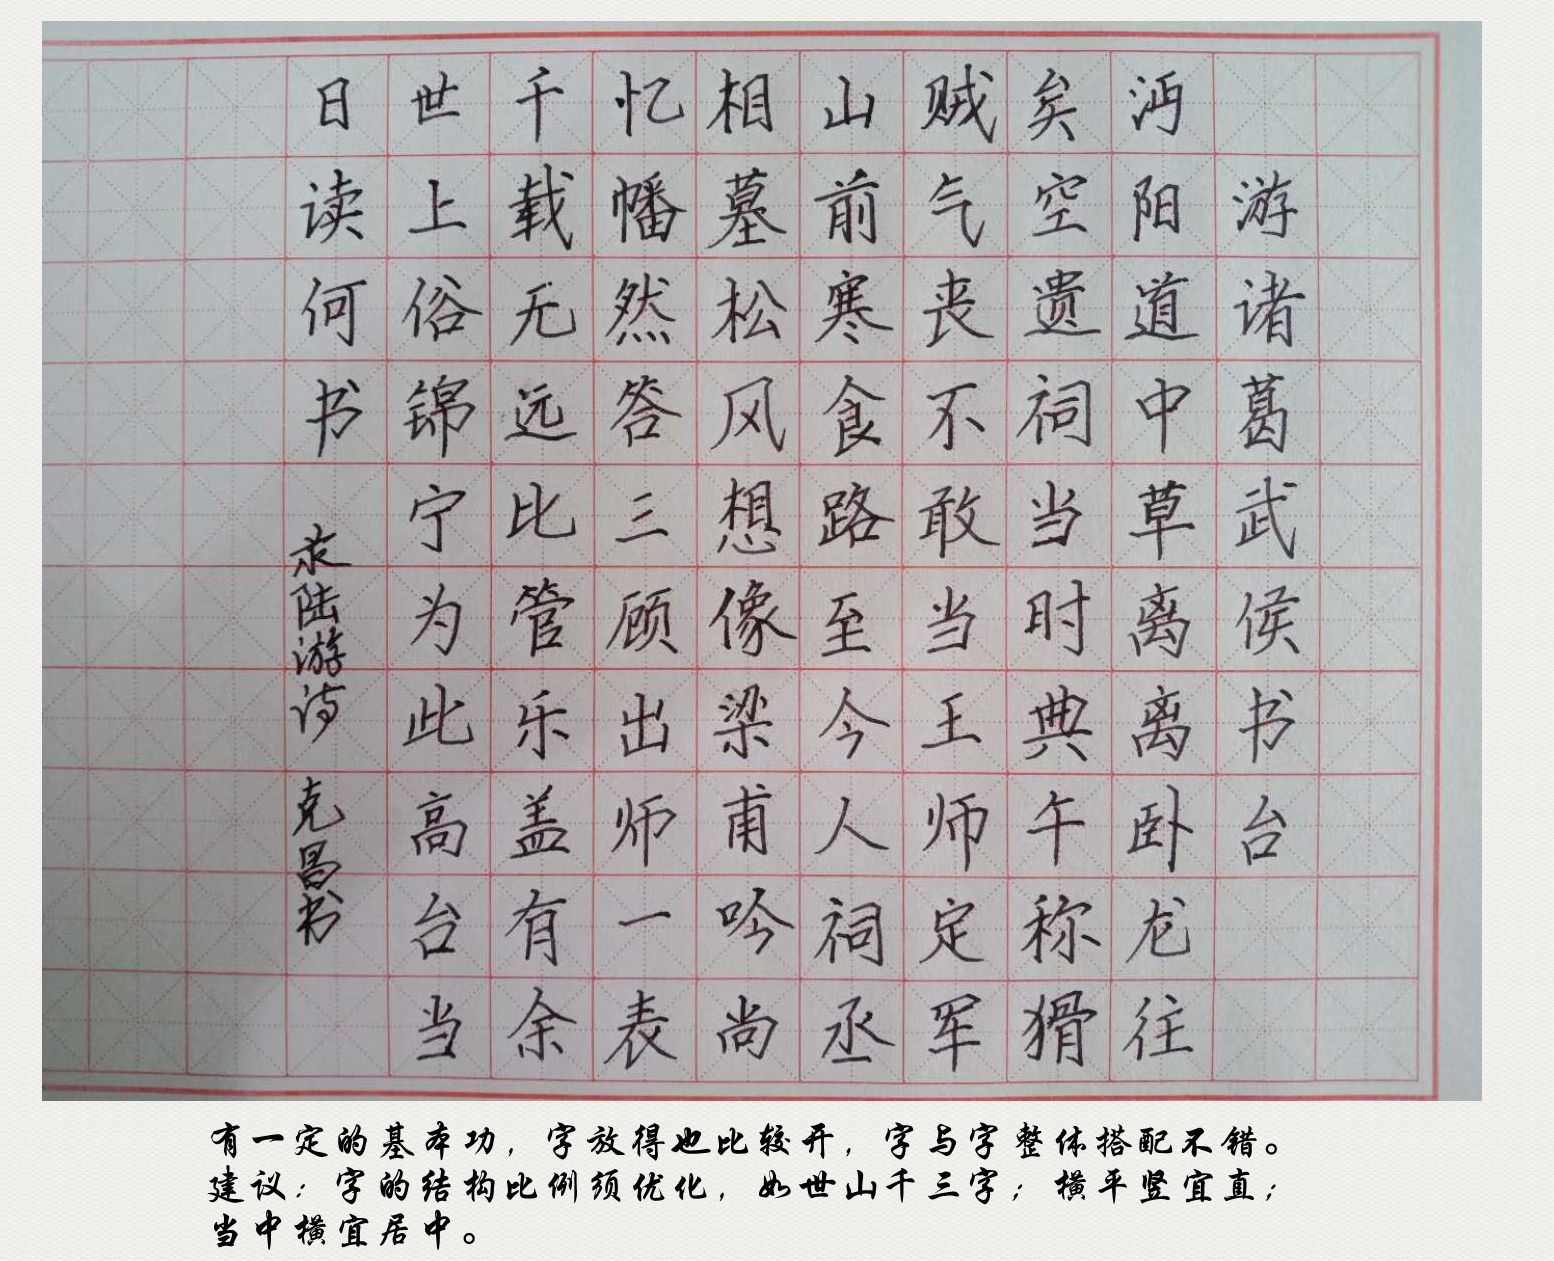 游诸葛武侯书台
沔阳道中草离离卧龙往
矣空遗祠当时典午称猾
贼气丧不敢当王师定军
山前寒食路至今人祠丞
相墓松风想像梁甫吟尚
忆幡然答三顾出师一表
千载无远比管乐盖有余
世上俗锦宁为此高台当
日读何书
录陆游诗 克昌书
有一定的基本功，字放得也比较开，字与字整体搭配不错。
建议：字的结构比例须优化，如世山千三字；横平竖宜直；
当中横宜居中。